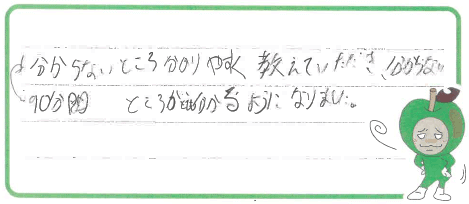 分からないところ分かりやすく教えていただき、分からない
90分間 ところが分かるようになりました。